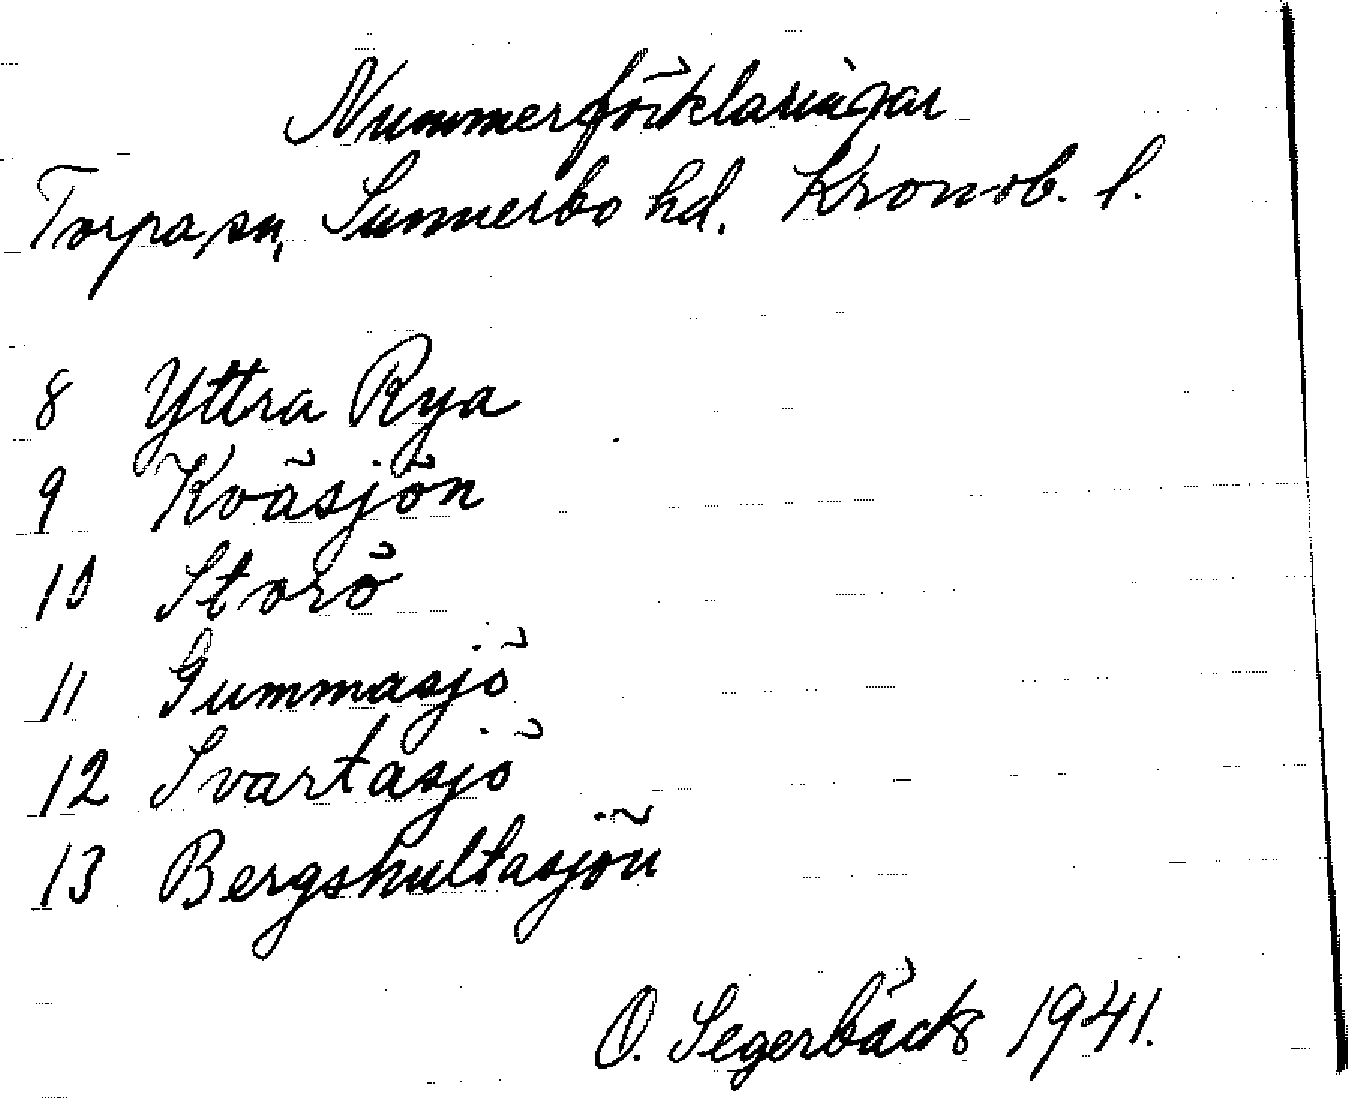 Nummerförklaringar
Torpa sn, Sunnerbo hd. Kronob. l.
8 Yttra Rya
9 Kväsjön
10 Storö
11 Gummasjö
12 Svartasjö
13 Bergshultasjön
O. Segerbäck 1941.